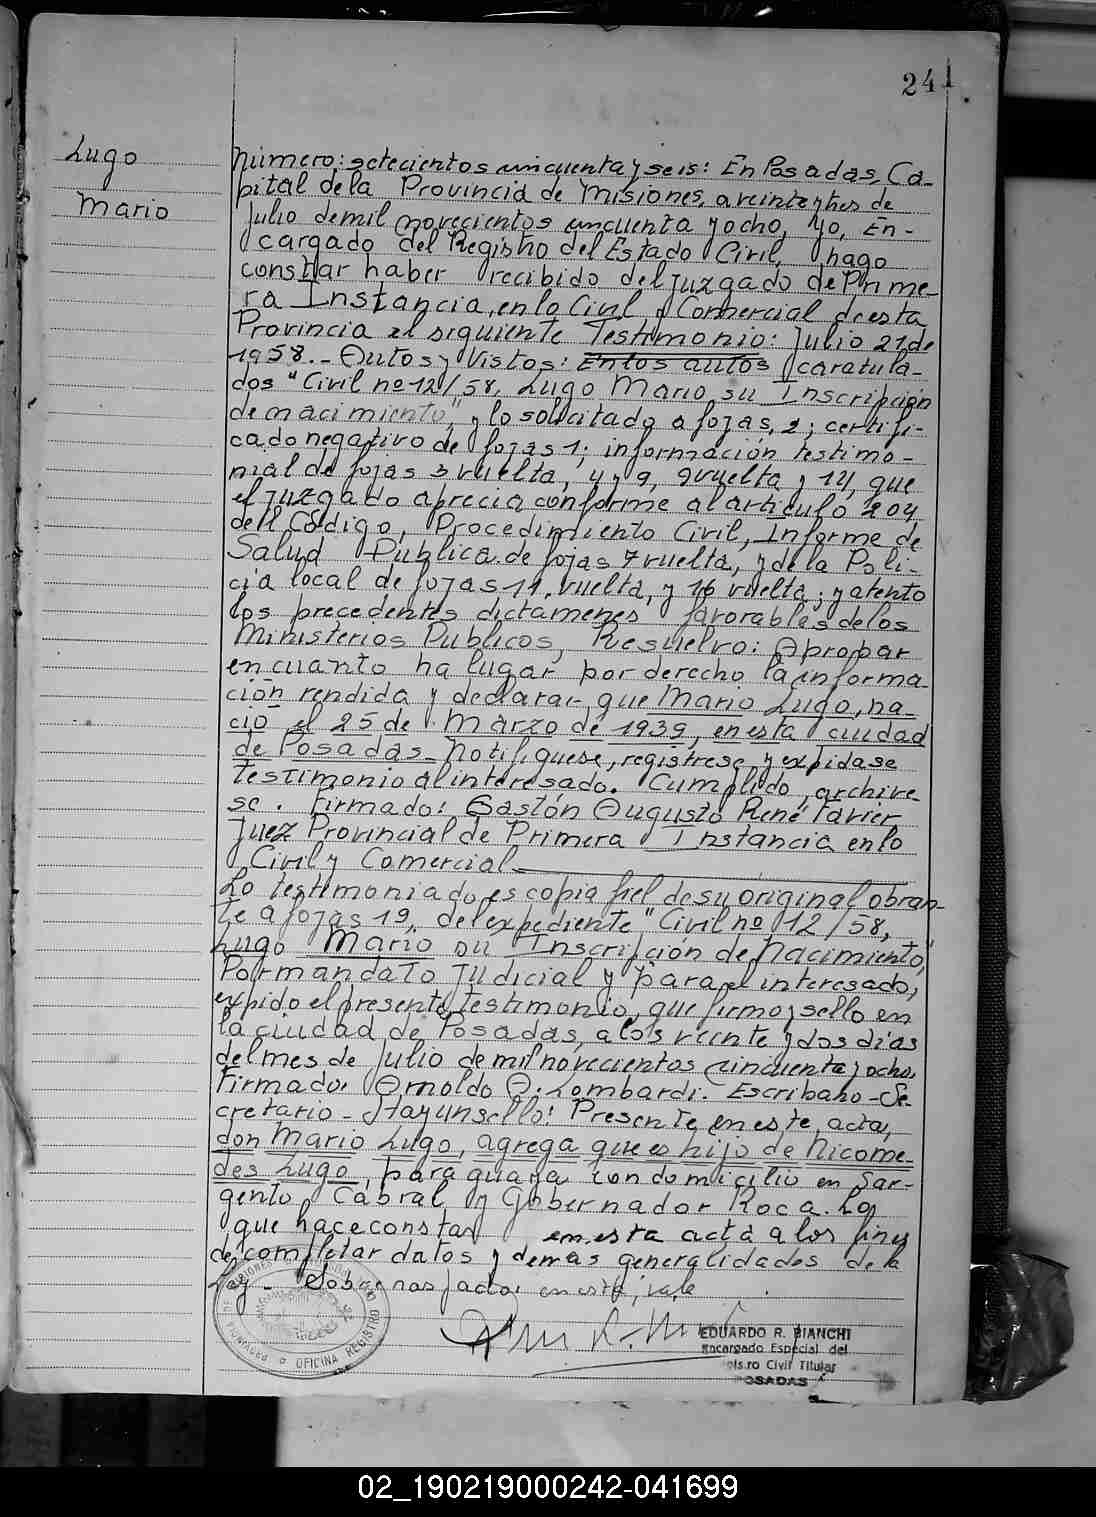 241
Lugo
Mario
Número: setecientos cincuenta y seis: En Posadas, Ca-
pital de la Provincia de Misiones, a veintey tres de
Julio de mil novecientos cincuenta y ocho, yo, En-
cargado del Registro del Estado Civil, hago
constar haber recibido del Juzgado de Prime-
ra Instancia, en lo Civil y Comercial de esta
Provincia el siguiente Testimonio: Julio 21 de
1958.- Autos y Vistos: En los autos caratula-
dos "Civil no 12/58, Lugo Mario su Inscripción
de nacimiento", y lo solicitado a fojas, 2; certifi-
cado negativo de fojas 1; información testimo-
nial de fojas 3 vuelta, 4 y 9, 9 vuelta y 14, que
el Juzgado aprecia conforme al artículo 204
del Código, Procedimiento Civil, Informe de
Salud Publica de fojas 7 vuelta, y de la Poli-
cia local de fojas 11, vuelta, y 16 vuelta; y atento
los precedentes dictamenes favorables de los
Ministerios Publicos, Resuelvo: Aprobar
en cuanto ha lugar por derecho la informa-
ción rendida y declarar, que Mario Lugo, na-
ció el 25 de Marzo de 1939, en esta ciudad
de Posadas- Notifiquese, registrese, y expidase
testimonio al interesado. Cumplido, archive-
se. Firmado: Gastón Augusto René Favier
Juez Provincial de Primera Instancia en lo
Civil y Comercial
Lo testimoniado es copia fiel de su original obran-
te a fojas 19, del expediente "Civil no 12/58,
Lugo Mario su Inscripción de Nacimiento",
Por mandato Judicial y para el interesado,
expido el presente testimonio, que firmo y sello en
la ciudad de Posadas, a los veinte y dos días
del mes de Julio de mil novecientos cincuenta y ocho,
Firmado: Arnoldo A. Lombardi. Escribano-Se-
cretario- Hay un sello: Presente en este acta,
don Mario Lugo, agrega que es hijo de Nicome-
des Lugo, paraguaya con domicilio en Sar-
gento Cabral y Gobernador Roca. Lo
que hace constar en esta acta a los fines
de completar datos y demas generalidades de la
Ley- Sobre raspado: en esta; vale
OFICINA REGISTRO
EDUARDO R. BIANCHI
Encargado Especial del
Civil Titular
POSADAS
02_190219000242-041699